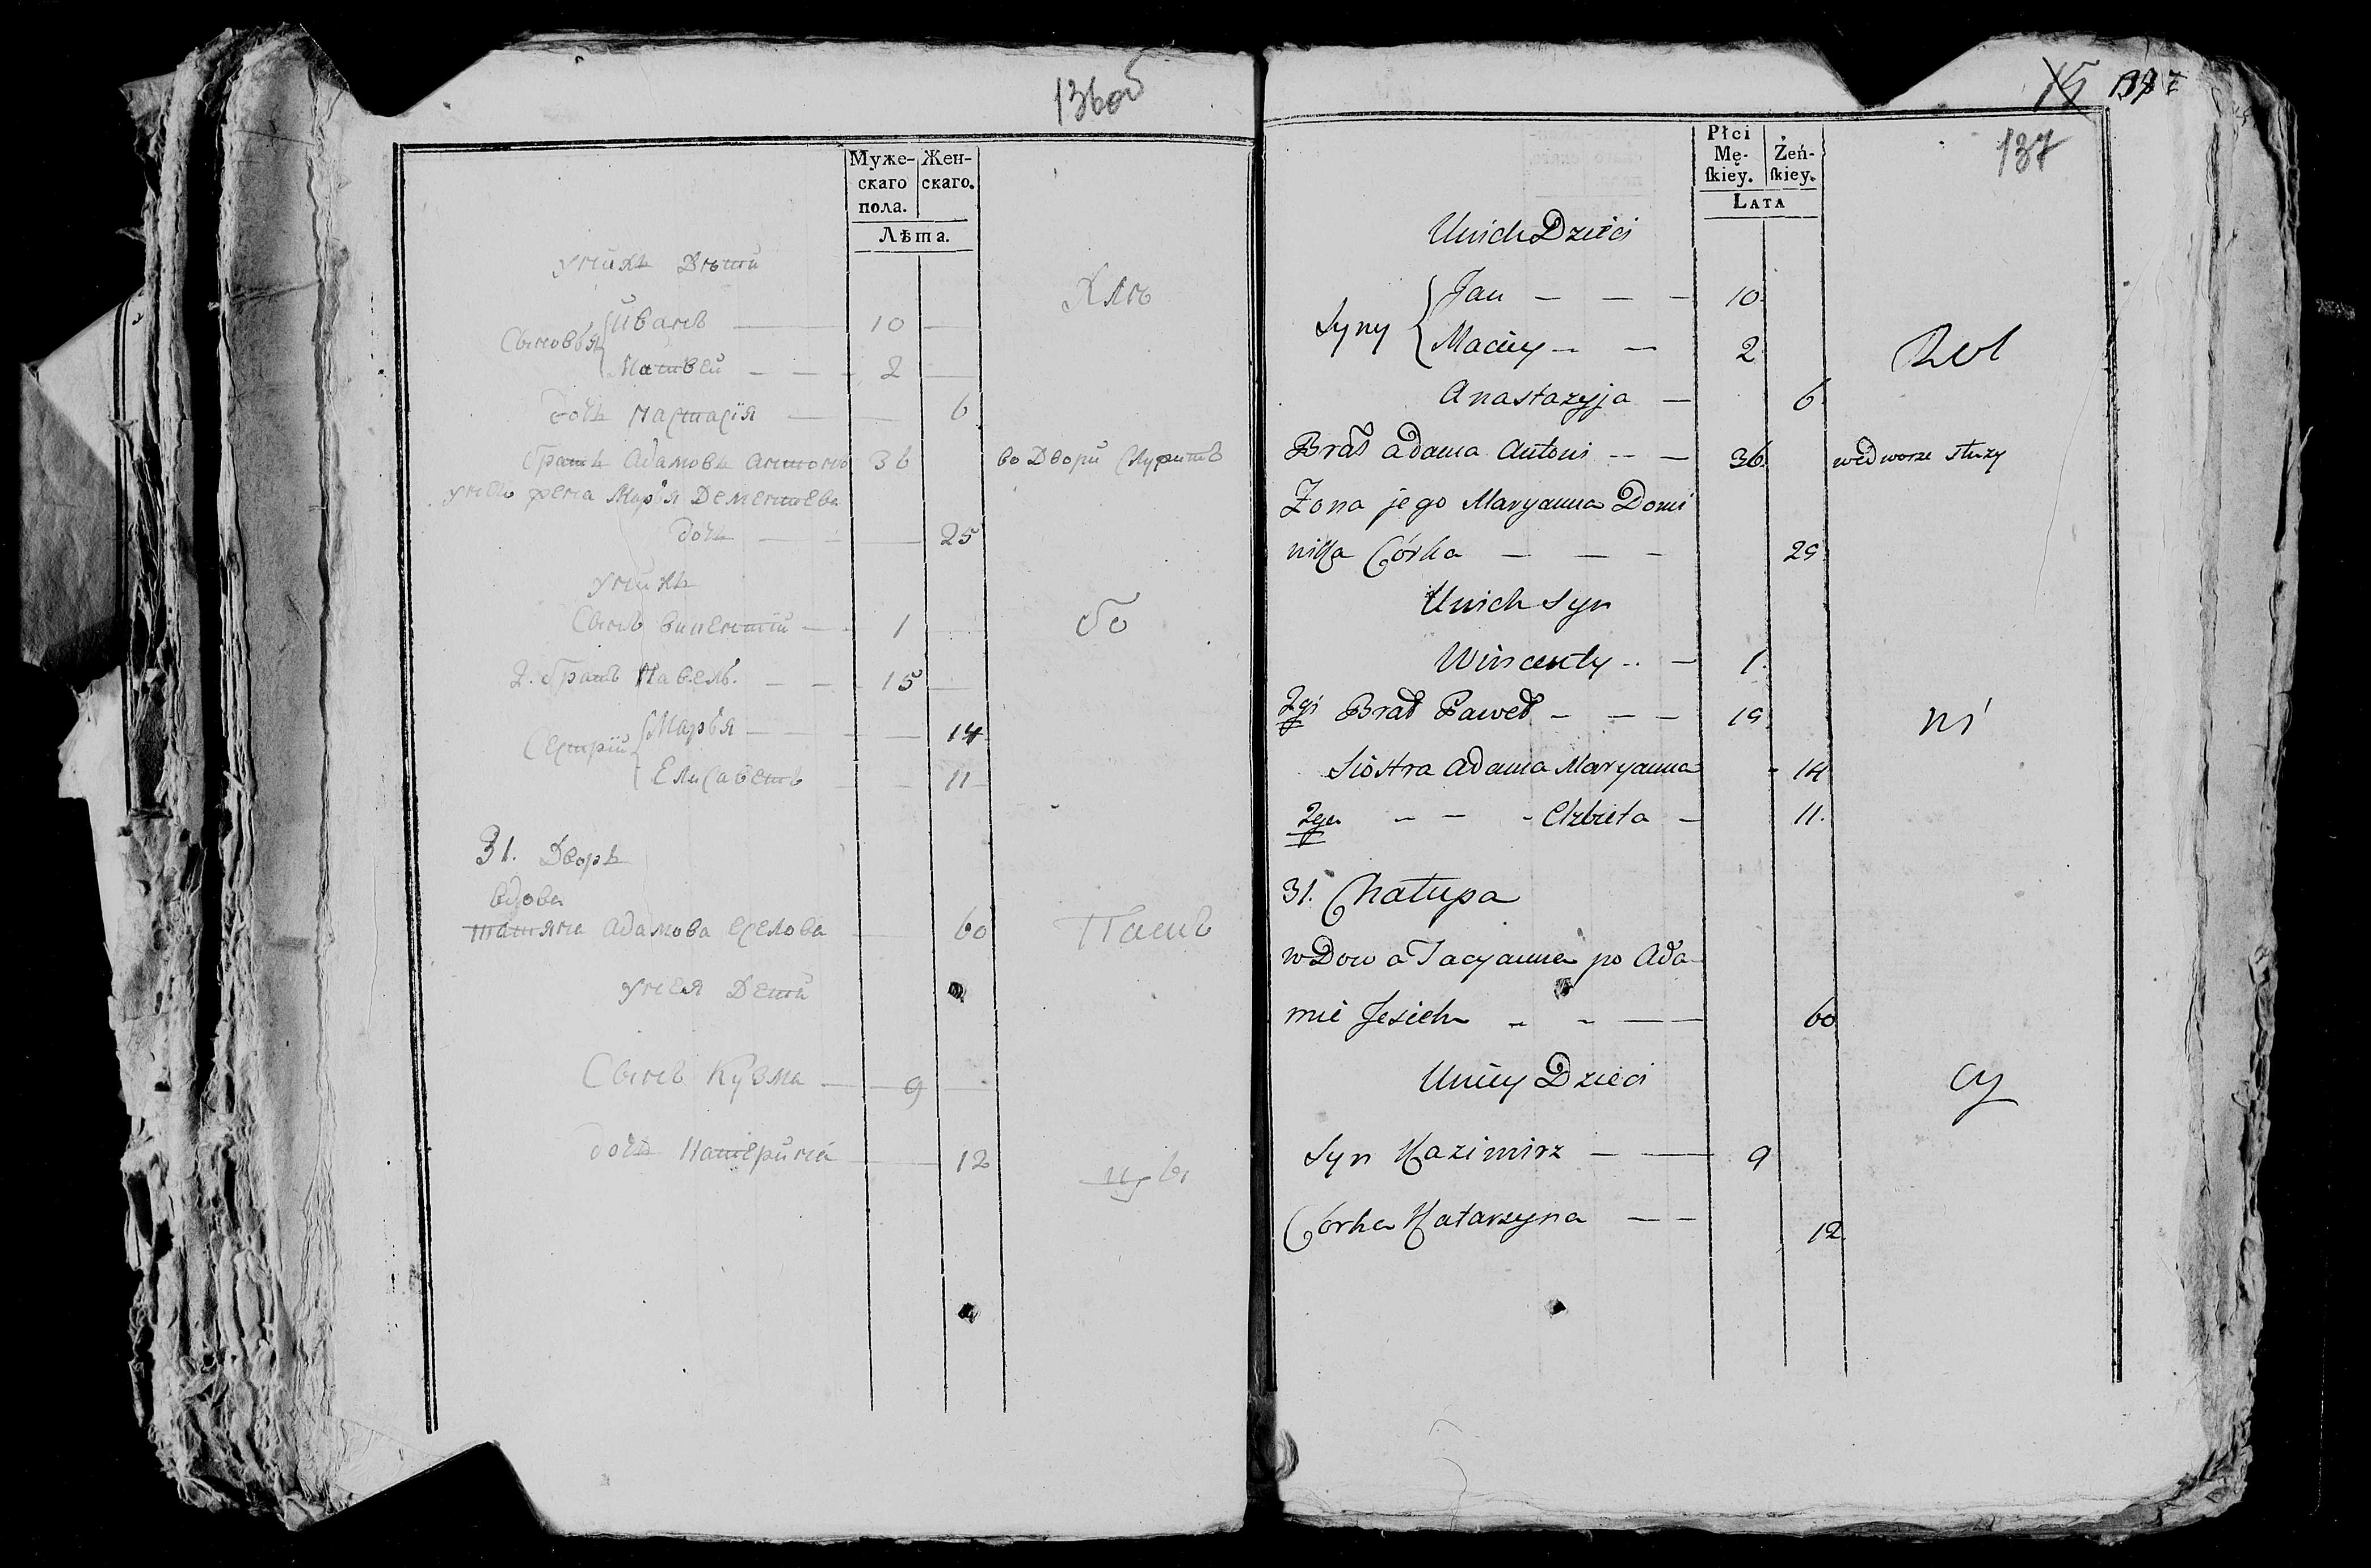 136об
Муже- Жен-
скаго скаго.
пола.
Лѣта.
унихъ Дѣти
Хлѣ
Сыновья Иванъ — 10 —
Матвей — — 2 —
дочь Настасія — — 6
братъ Адамовъ Антонъ 36 во Дворѣ Служитъ
унего жена Марья Дементьева
дочь — — — 25
унихъ
Сынъ Викентій — 1 бо
2. братъ Павелъ. — — 15 —
Сестры Марья — — — — 14
Елисаветъ — — 11
31. Дворъ
вдова
Татяна Адамова Еселова — 60 Паш
унея Дети
Сынъ Кузма — 9 —
дочь Катерина — 12
цы
15 137
137
Płci
Mę- Żeń-
ſkiey. ſkiey.
LATA
Unich Dzieci
Syny Jan — — — 10.
Maciey — — 2 Rol
Anastazyja — 6.
Brat Adama Antoni — — 36. wedworze służy
Żona jego Maryanna Domi
nika Córka — — — 25.
Unich Syn
Wincenty — 1.
2gi Brat Paweł — — — 15. ni
Siostra Adama Maryanna - 14
2ga — — - Elzbieta — 11.
31. Chałupa
wDowa Tacyanna po Ada-
mie Jesieh - - — 60.
Unięy Dzieci cy
Syn Kazimirz — — 9
Córka Katarzyna — — 12.